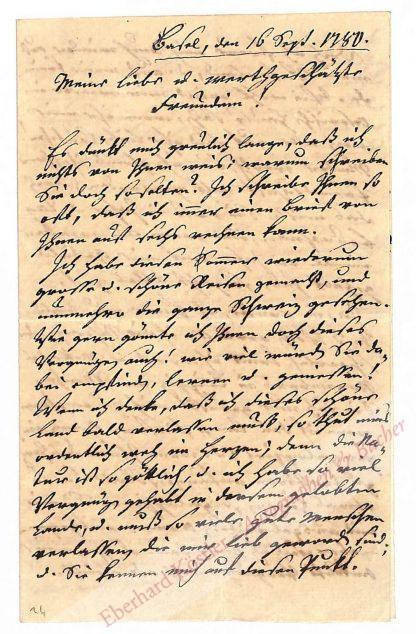 Basel, den 16 Sept. 1780.
Meine liebe u. werthgeschätzte
Freundin!
Es dünkt mich greulich lange, daß ich
nichts von Ihnen weis; warum schreiben
Sie doch so selten? Ich schreibe Ihnen so
oft, daß ich immer einen Brief von
Ihnen auf sechs rechnen kann.
Ich habe diesen Sommer wiederum
grosse u. schöne Reisen gemacht, und
nunmehro die ganze Schweiz gesehen.
Wie gern gönnte ich Ihnen doch dieses
Vergnügen auch! wie viel würden Sie da-
bei empfinden, lernen u. geniessen!
Wenn ich denke, daß ich dieses schöne
Land bald verlassen muß, so thut mirs
ordentlich weh im Herzen; denn die Na-
tur ist so göttlich, u. ich habe so viel
Vergnügen gehabt in diesem gelobten
Lande, u. muß so viele gute Menschen
verlassen, die mir lieb geworden sind;
u. Sie kennen mich auf diesen Punkt.
24
Eberhard Köstler Autographen & Bücher